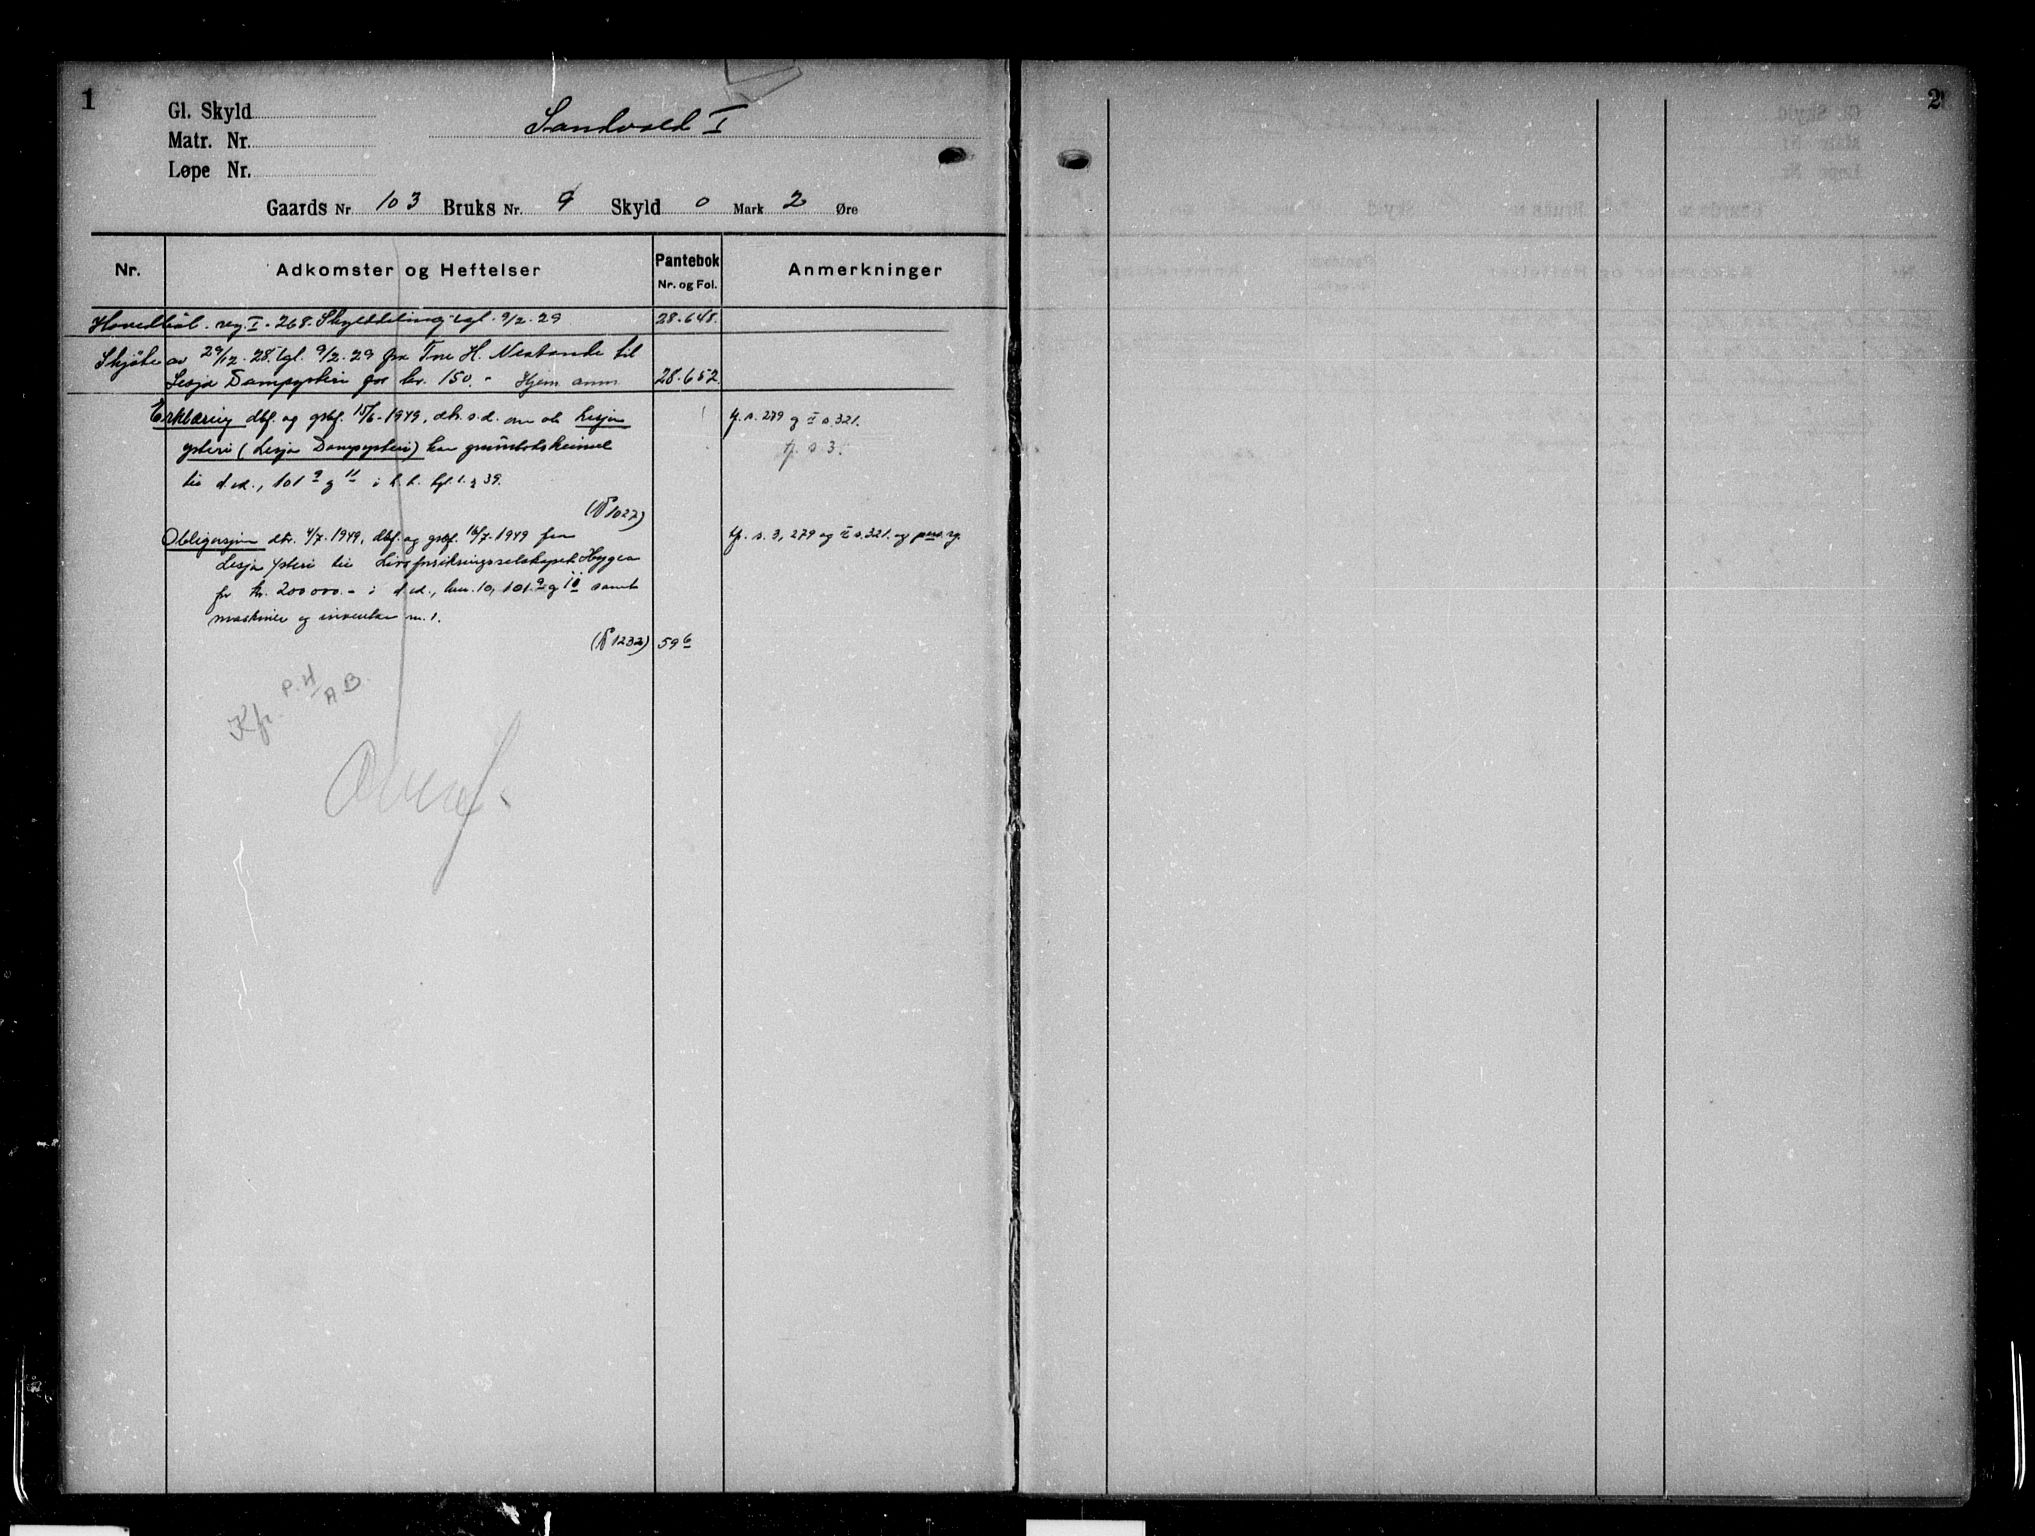 1
Gl. Skyld
Matr. Nr.
Løpe Nr.
Sandvold I
Gaards Nr 103 Bruks Nr. 9 Skyld 0 Mark 2 Øre
Nr. Adkomster og Heftelser Pantebok Nr. og Fol. Anmerkninger
Hovedböl. reg. I - 268. Skylddeling tgl. 9/2-29 28.648.
Skjöte av 29/12-28. tgl. 9/2-29 fra Tore H. til
Lesja Dampysteri for kr. 150.- Hjem anm 28.652.
Erklæring dbf. og gbf. 15/6-1949, dtr. s.d. om at Lesja
ysteri (Lesja Dampysteri) har grunnboksheimel
til d.ed., 101 9 og 11 i h.h. tgl.
(№ 1027)
tf. s. 279 og II s. 321.
tf. s. 3.
Obligasjon dtr. 4/7-1949, dbf. og gbf. 16/7-1949 fra
Lesja ysteri til Livsforsikringsselskapet Hygea
for kr. 200000.- i d.ed., bnr. 10, 101 9 og 11 samt
maskiner og inventar m.v.
(№ 1232) 596
tf. s. 3, 279 og II s. 321. og pers.rg.
Kfr. P.H/A.B.
Overf.
2